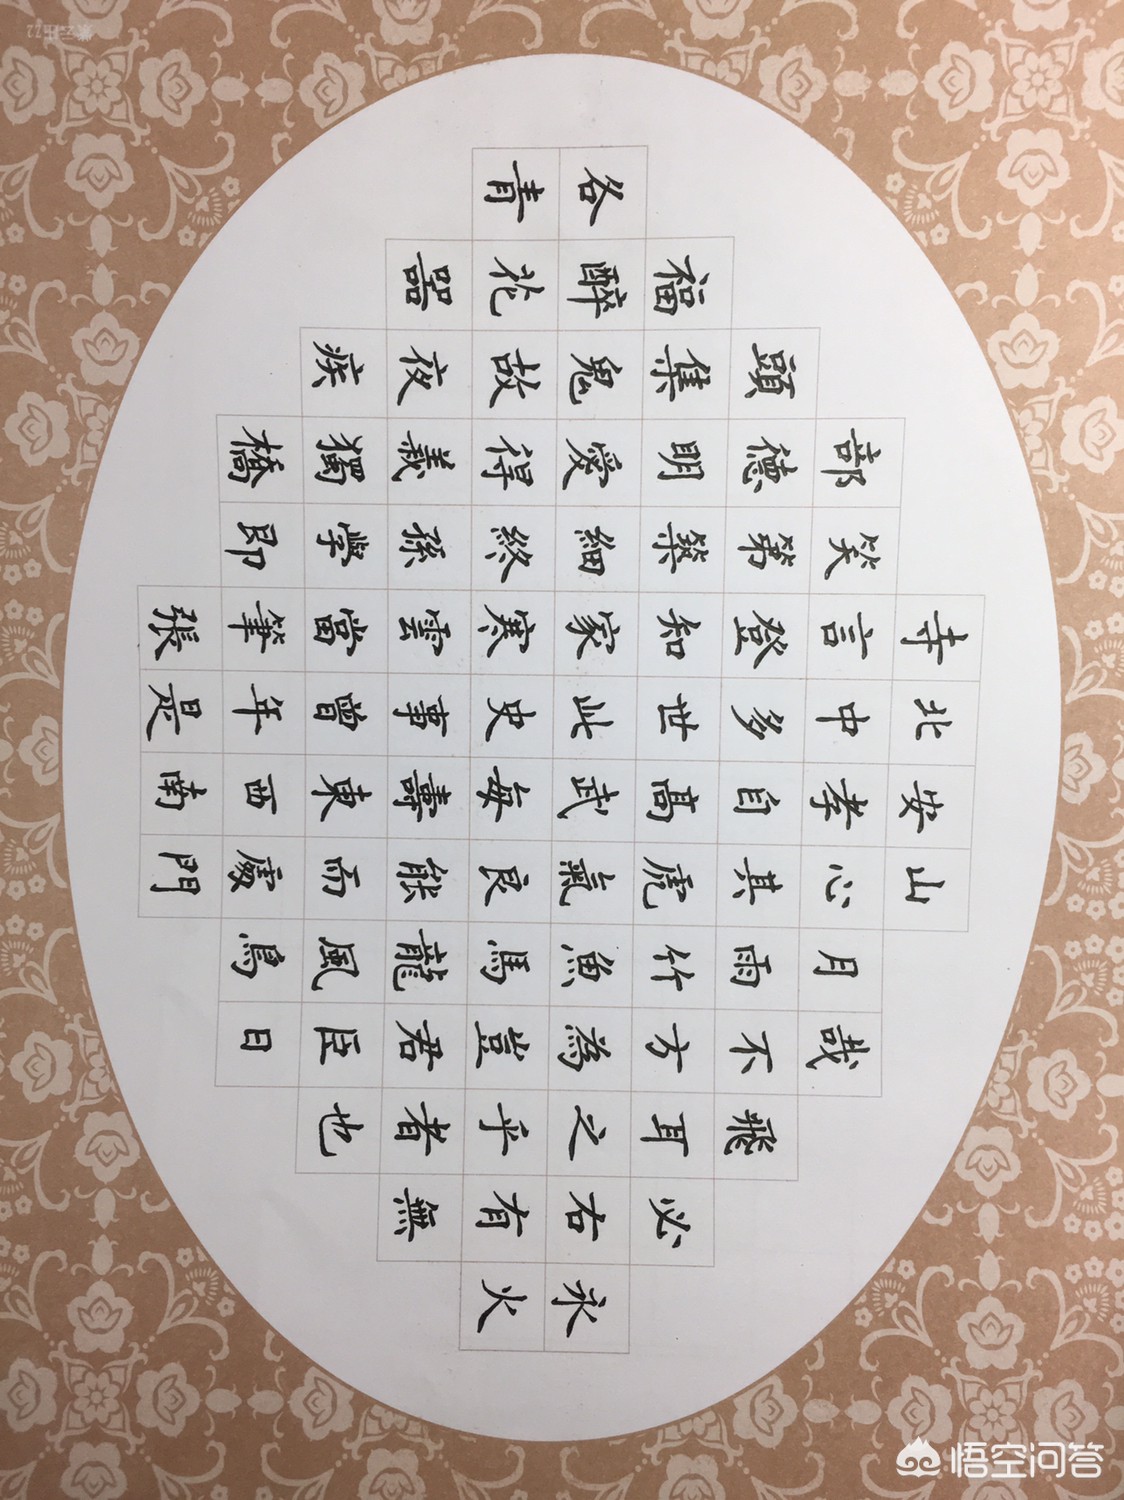 寺北安山
部笑言中孝心月哉
頭德第登多自其雨不飛
福集明築知世高虎竹方耳必
各醉鬼愛細家此武氣魚為之右永
青花故得終寒史每良馬豈乎有火
噐夜義孫雲事壽能龍君者無
疾獨學當曾東而風臣也
橋即筆年西處鳥日
張是南門
悟空问答